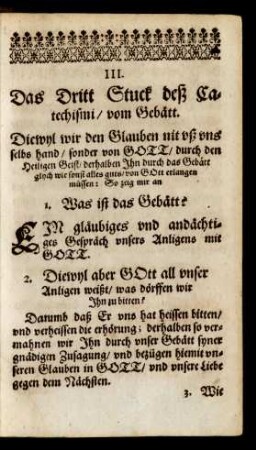 III.
Das Dritt Stuck deß Ca-
techismi/ vom Gebätt.
Diewyl wir den Glauben nit vß vns
selbs hand/ sonder von GOTT/ durch den
Heiligen Geist/ derhalben Ihn durch das Gebätt
glych wie sonst alles guts/ von GOtt erlangen
müssen: So zeig mir an
1. Was ist das Gebätt?
EIN gläubiges vnd andächti-
ges Gespräch vnsers Anligens mit
GOTT.
2. Diewyl aber GOtt all vnser
Anligen weißt/ was dörffen wir
Ihn zu bitten?
Darumb daß Er vns hat heissen bitten/
vnd verheissen die erhörung; derhalben so ver-
mahnen wir Ihn durch vnser Gebätt syner
gnädigen Zusagung/ vnd bezügen hiemit vn-
seren Glauben in GOTT/ vnd vnsere Liebe
gegen dem Nächsten.
3. Wie